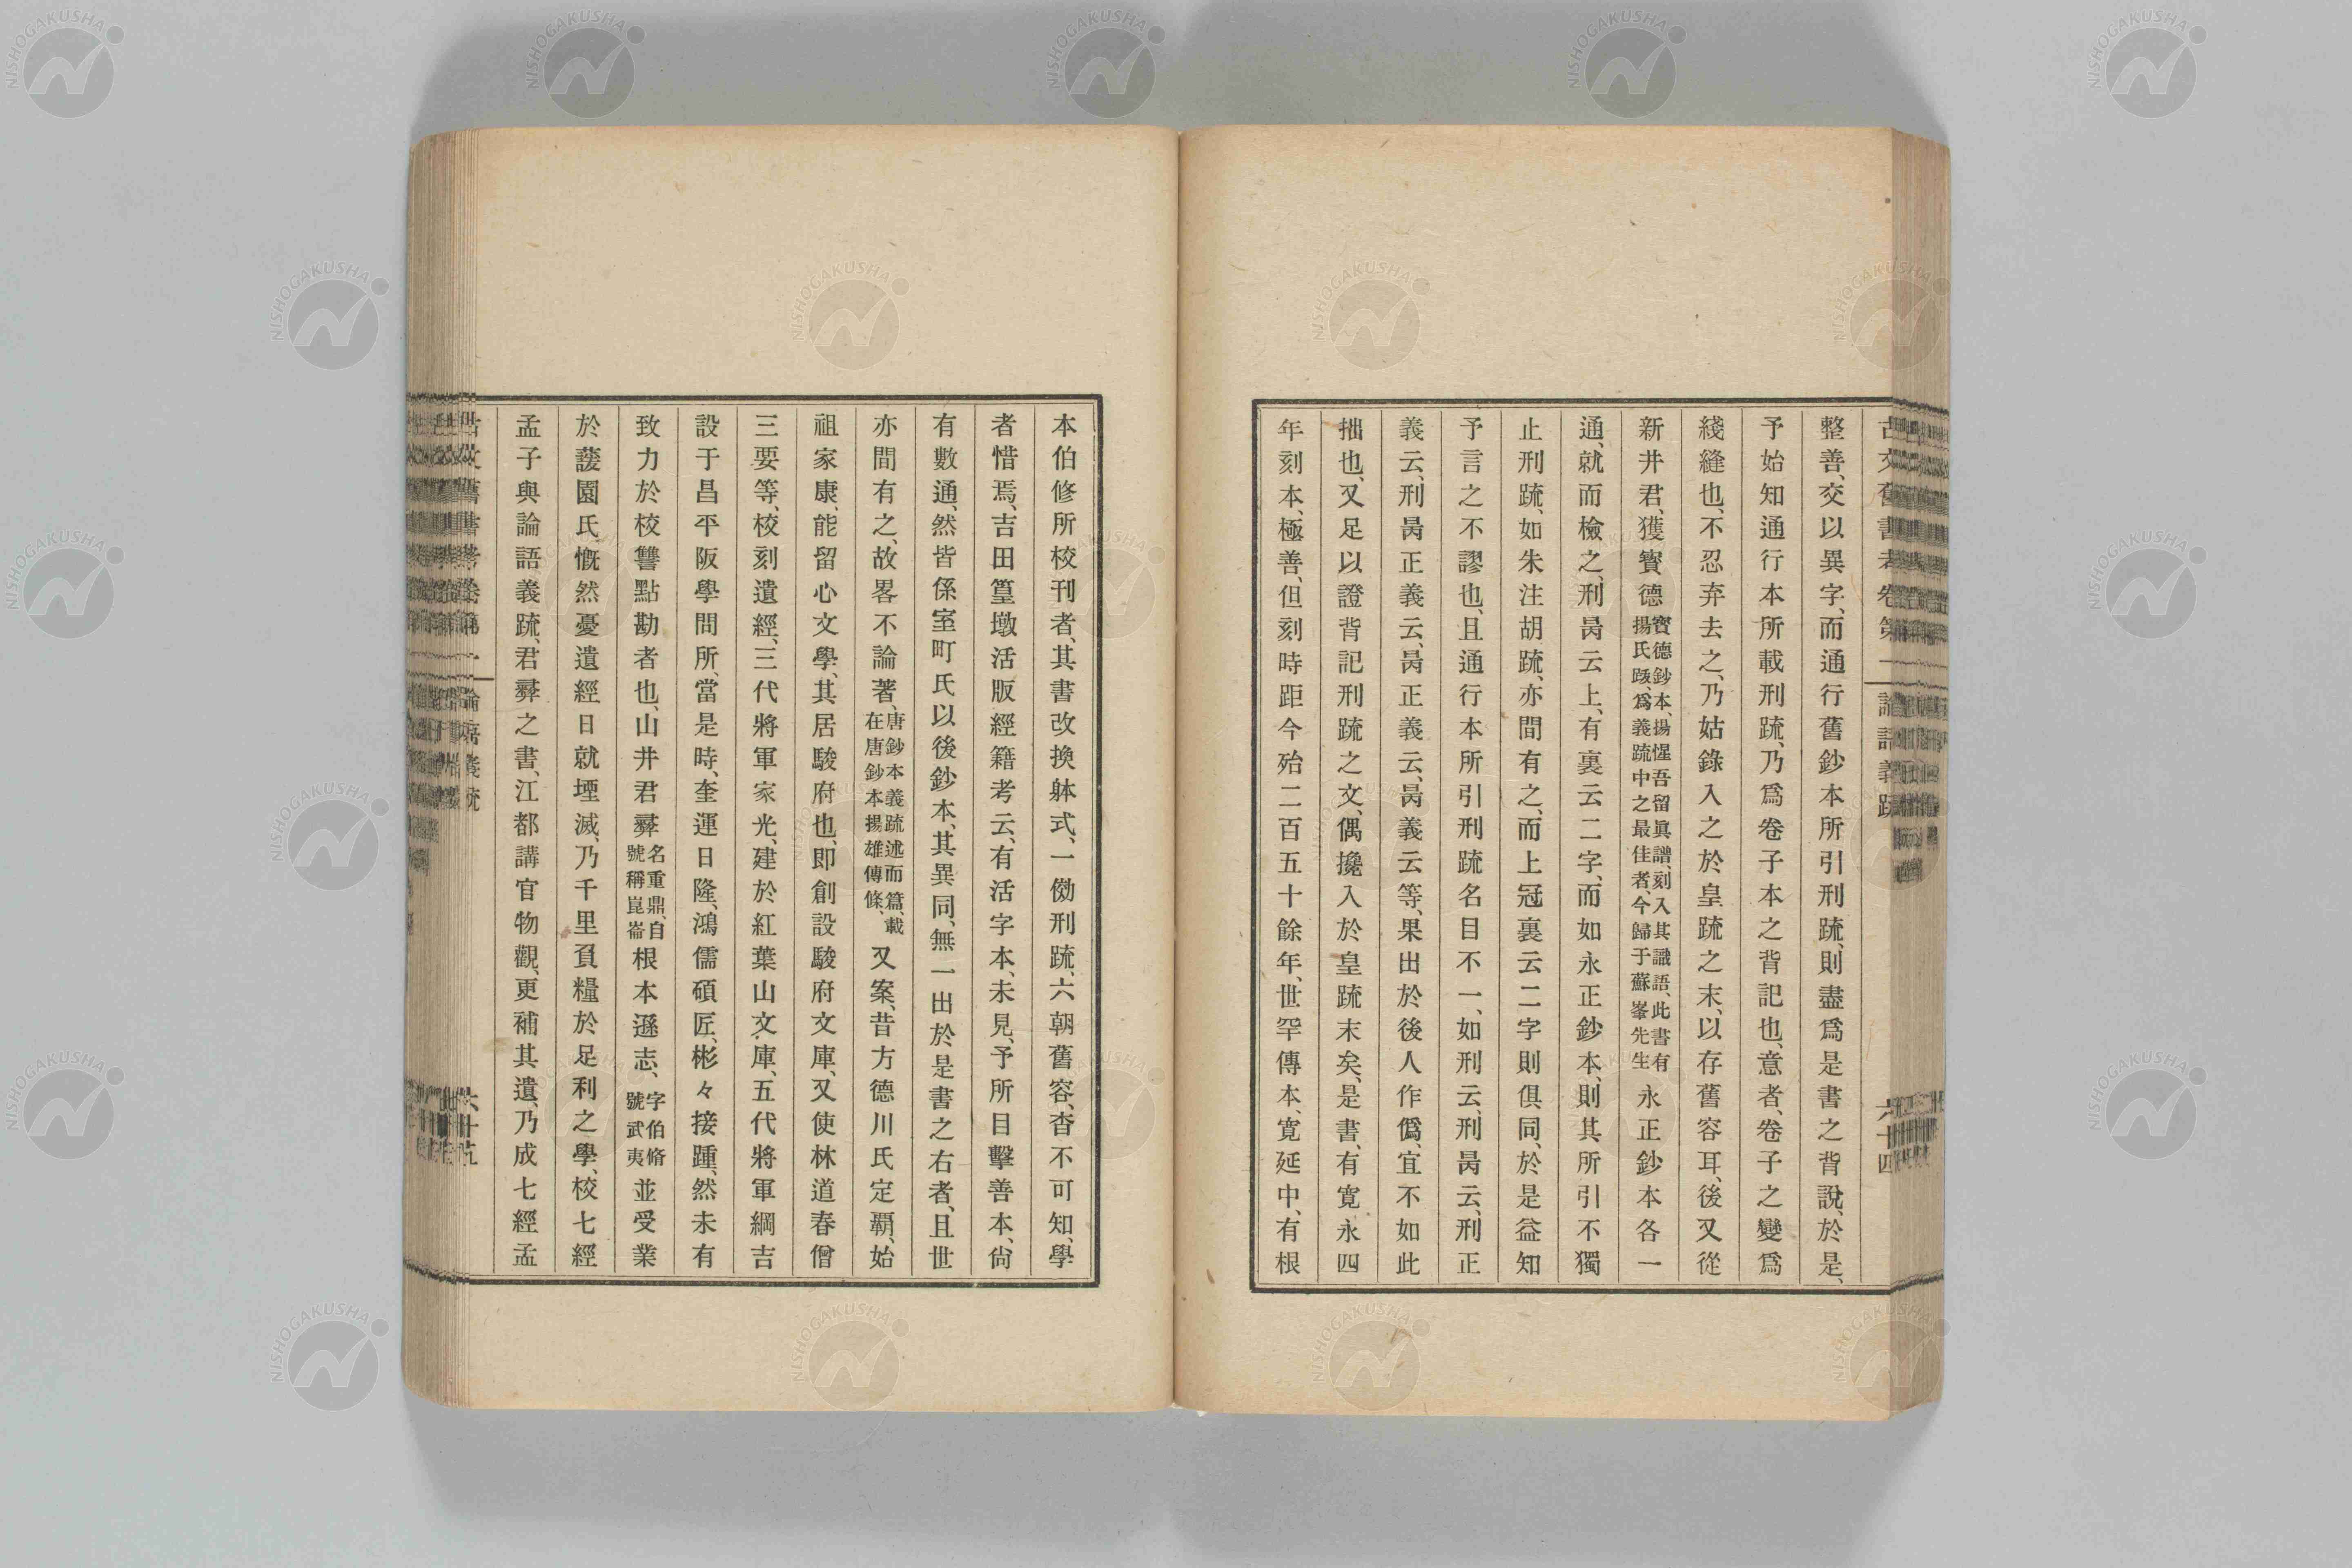 古文舊書考卷第一 論語義疏 六十四
整善、交以異字、而通行舊鈔本所引刑疏、則盡爲是書之背說、於是、
予始知通行本所載刑疏、乃爲卷子本之背記也、意者、卷子之變爲
綫縫也、不忍弃去之、乃姑錄入之於皇疏之末、以存舊容耳、後又從
新井君、獲寳德寳德鈔本、揚惺吾留眞譜刻入其識語、此書有
揚氏䟦、爲義疏中之最佳者、今歸于蘇峯先生永正鈔本各一
通、就而檢之、刑昺云上、有裏云二字、而如永正鈔本、則其所引不獨
止刑疏、如朱注胡疏、亦間有之、而上冠裏云二字則俱同、於是益知
予言之不謬也、且通行本所引刑疏名目不一、如刑云、刑昺云、刑正
義云、刑昺正義云、昺正義云、昺義云等、果出於後人作僞、宜不如此
拙也、又足以證背記刑疏之文、偶攙入於皇疏末矣、是書、有寛永四
年刻本、極善、但刻時距今殆二百五十餘年、世罕傳本、寛延中、有根
本伯修所校刊者、其書改換躰式、一傚刑疏、六朝舊容、杳不可知、學
者惜焉、吉田篁墩活版經籍考云、有活字本、未見、予所目擊善本、尙
有數通、然皆係室町氏以後鈔本、其異同、無一出於是書之右者、且世
亦間有之、故畧不論著、唐鈔本義疏述而篇、載
在唐鈔本揚雄傳條、又案、昔方德川氏定覇、始
祖家康、能留心文學、其居駿府也、即創設駿府文庫、又使林道春僧
三要等、校刻遺經、三代將軍家光、建於紅葉山文庫、五代將軍綱吉
設于昌平阪學問所、當是時、奎運日隆、鴻儒碩匠、彬々接踵、然未有
致力於校讐點勘者也、山井君彛名重鼎、自
號稱崑崙根本遜志、字伯脩
號武夷並受業
於蘐園氏、慨然憂遺經日就堙滅、乃千里負糧於足利之學、校七經
孟子與論語義疏、君彛之書、江都講官物觀、更補其遺、乃成七經孟